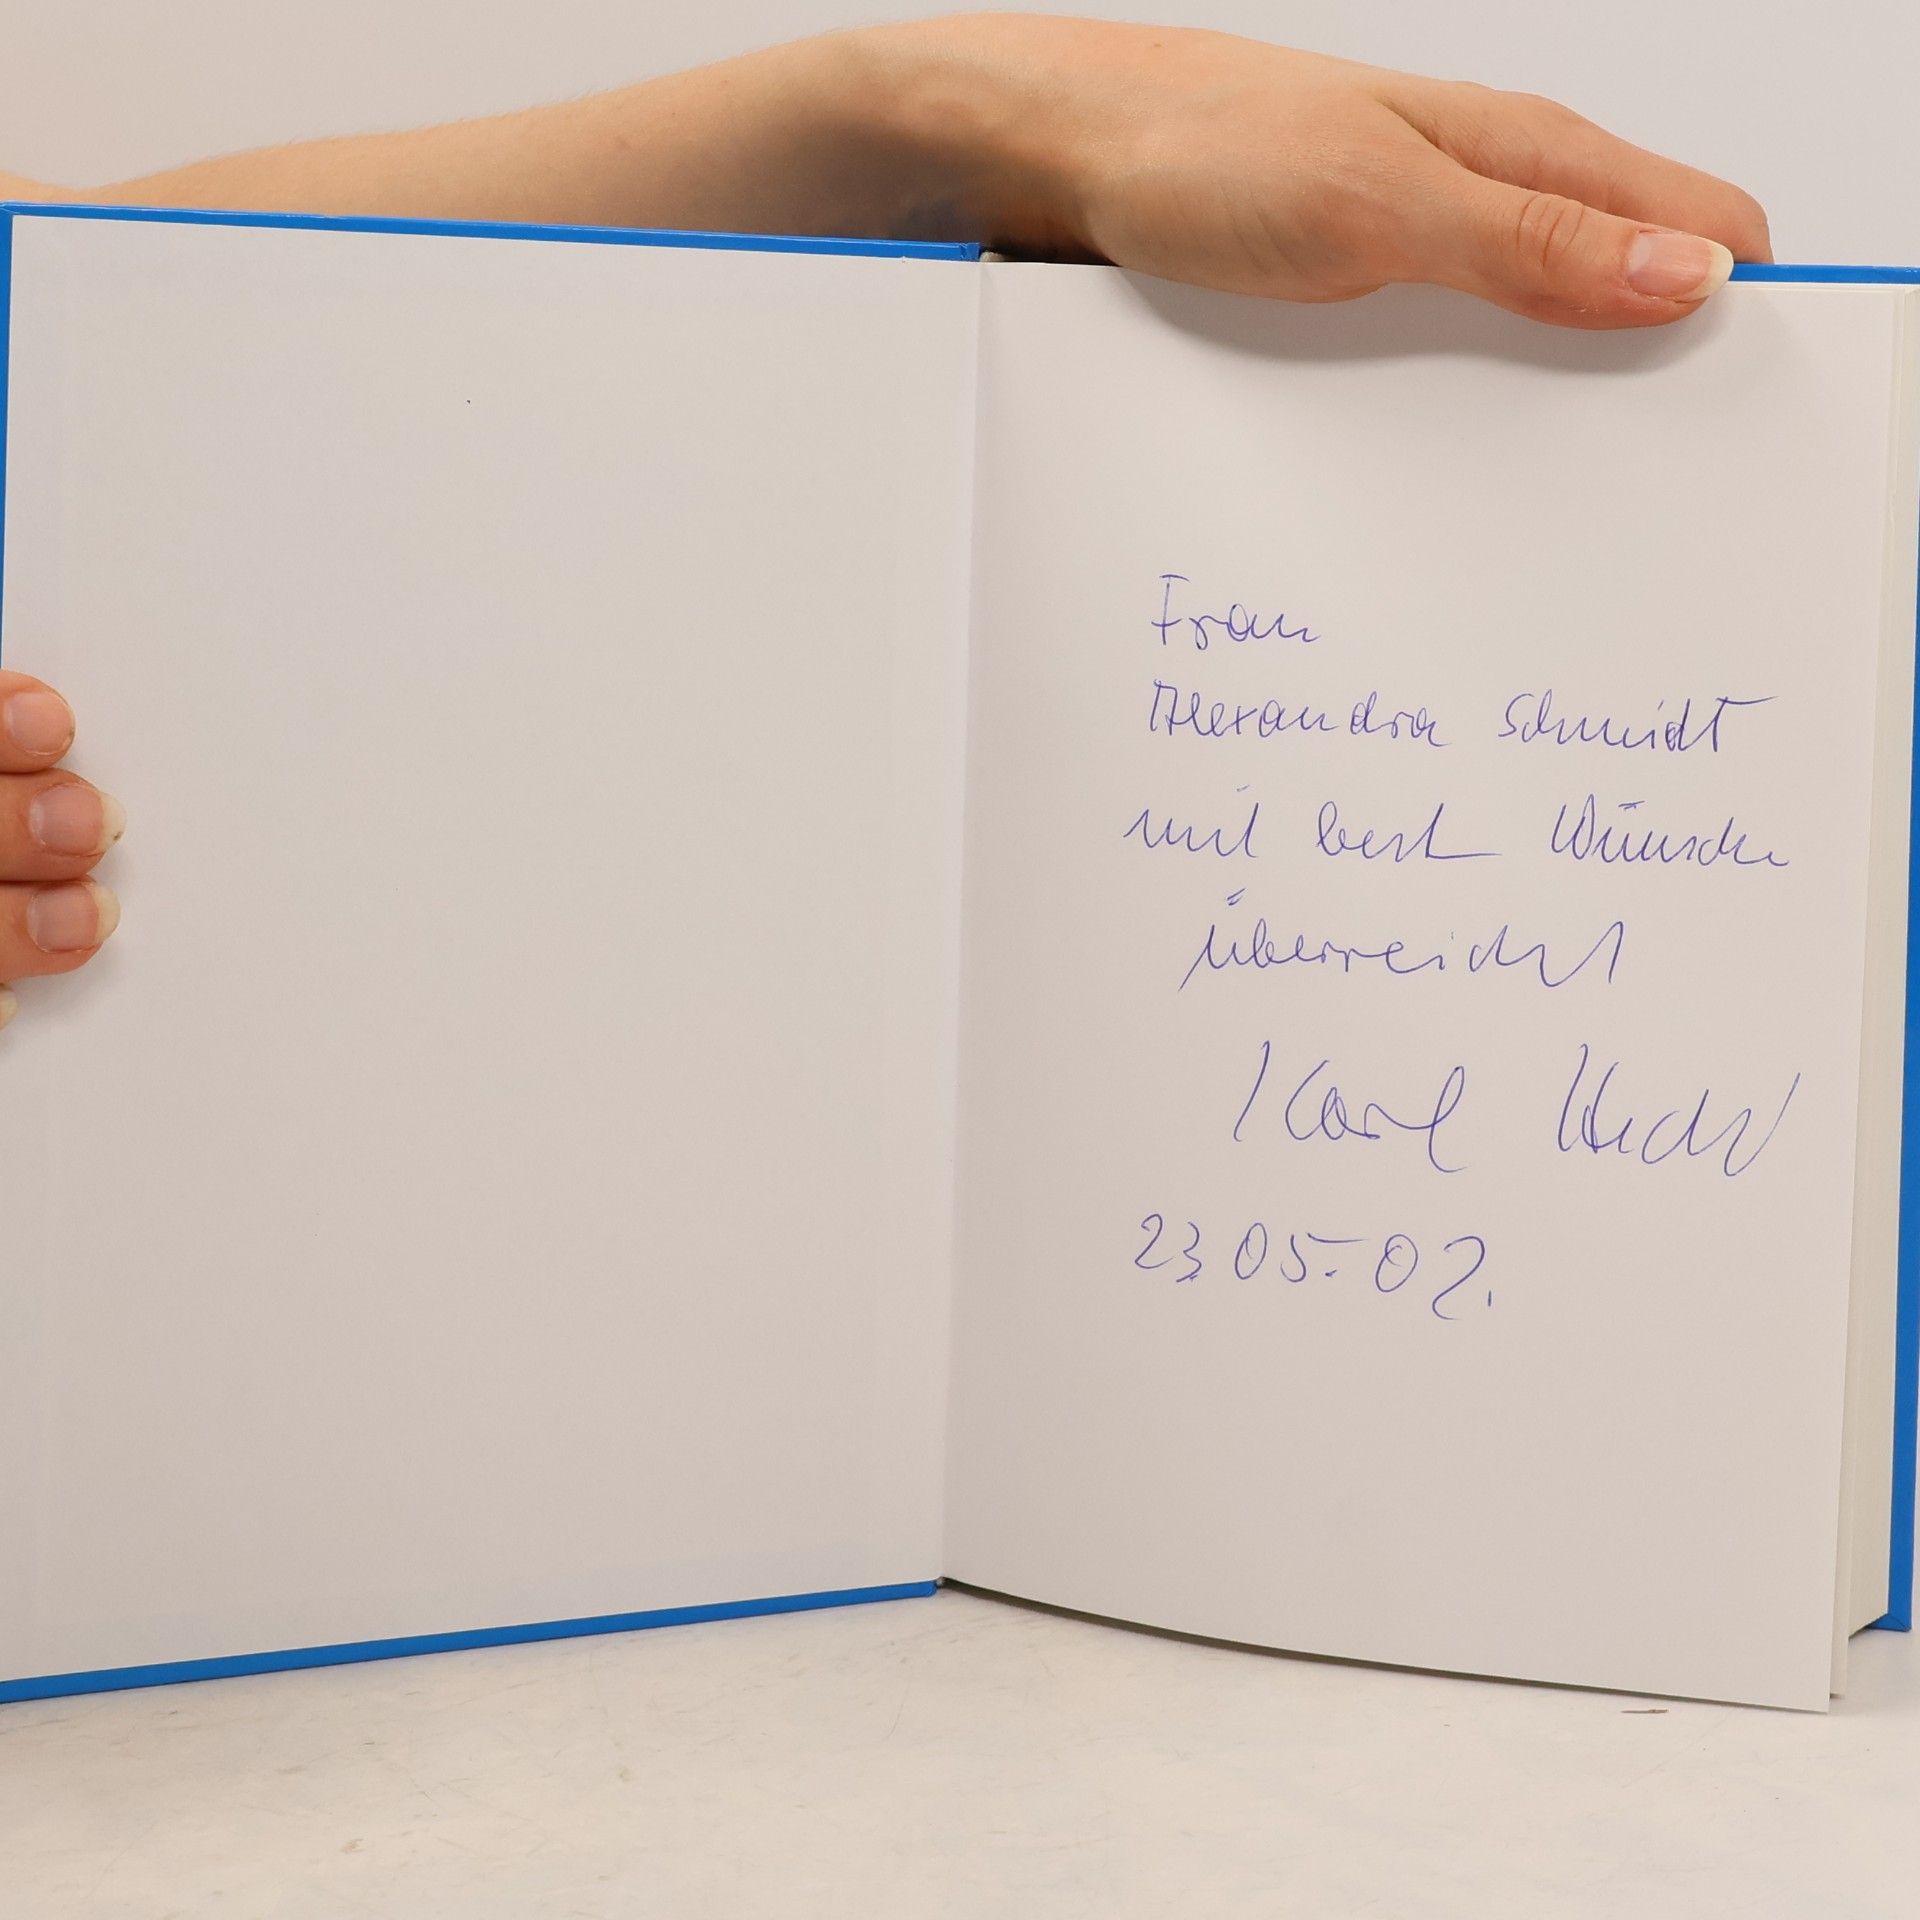 Frau
Alexandra Schmidt
mit best Wünsche
überreicht
Karl Hecht
23.05.02.